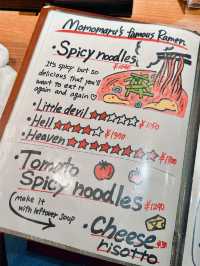 Momomaru's famous Ramen.
・Spicy noodles
It's spicy but so
delicious that you'll
want to eat it
again and again ♡
・Little devil ★★☆☆☆
・Hell ★★★★★
・Heaven ★★★★★★★★
・Tomato
Spicy noodles
¥1290
make it
with leftover soup
・Cheese
risotto